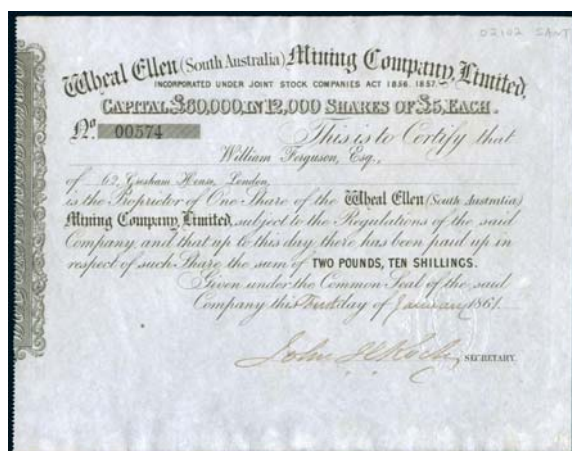 02102 SANT
Wheal Ellen (South Australia) Mining Company, Limited,
INCORPORATED UNDER JOINT STOCK COMPANIES ACT 1856. 1857.
CAPITAL £60,000, IN 12,000 SHARES OF £5, EACH.
No. 00574 This is to Certify that
William Ferguson, Esq.,
of 62, Gresham House, London,
is the Proprietor of One Share of the Wheal Ellen (South Australia)
Mining Company, Limited, subject to the Regulations of the said
Company and that up to this day, there has been paid up in
respect of such Share the sum of TWO POUNDS, TEN SHILLINGS.
Given under the Common Seal of the said
Company this First day of January 1861.
John SECRETARY.